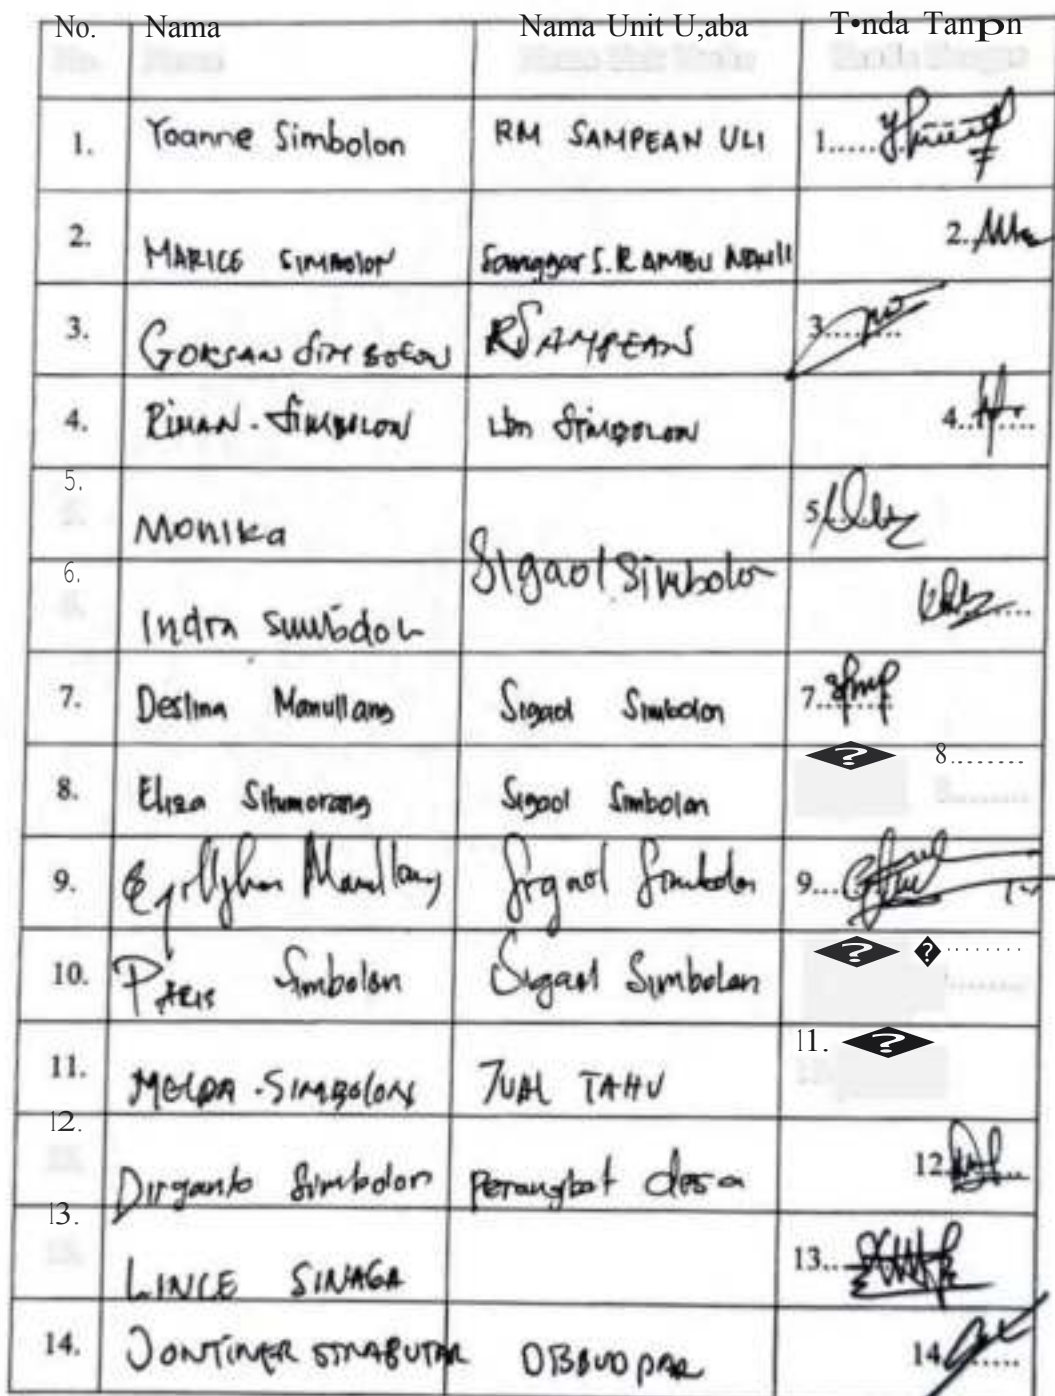 No. Nama Nama Unit U,aba T•nda Tanpn
1. Yoanne Simbolon RM SAMPEAN ULI 1.....
2. MARICE SIMBOLON Sanggar S. RAMBU NAULI 2.
3. GOKSAN SIMBOLON RSAMPEANS 3.........
4. RIMAN - SIMBOLON SIMBOLON 4.........
5. MONIKA 5
Sigaol Simbolon
6. Indra
7. Destina Manullang Sigaol Simbolon 7.........
8. Eliza Situmorang Sigaol Simbolon 8........
9. Manullang Sigaol Simbolon 9....
10. Simbolon Sigaol Simbolon
11. MELDA - SIMBOLON JUAL TAHU 11.
12. Dirganto Simbolon Perangkat desa 12
13. LINCE SINAGA 13...
14. JONTINER SINABUTAR 14......